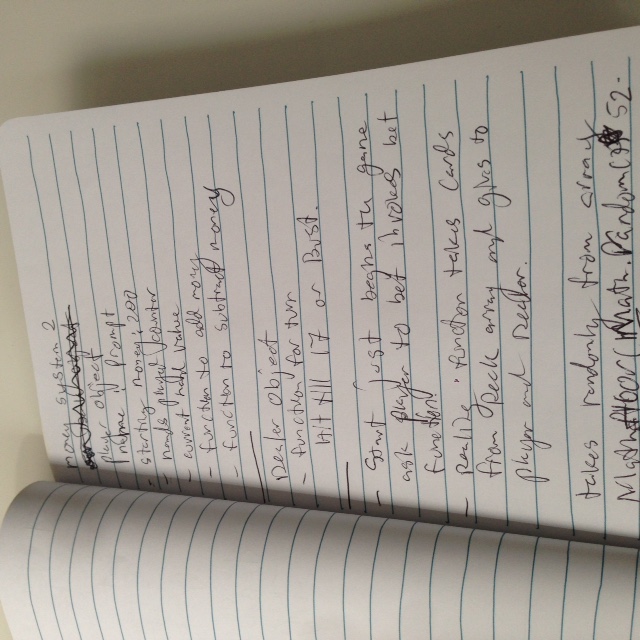 money system 2
player object
name : prompt
- starting money : 200
- hands played counter
- current hand value
- function to add money
- function to subtract money
Dealer object
- function for turn
Hit till 17 or Bust.
- Start just begins the game
ask player to bet invokes bet
function.
- function takes cards
from Deck array and gives to
player and Dealer.
takes randomly from array
Math.floor(Math.Random() 52.